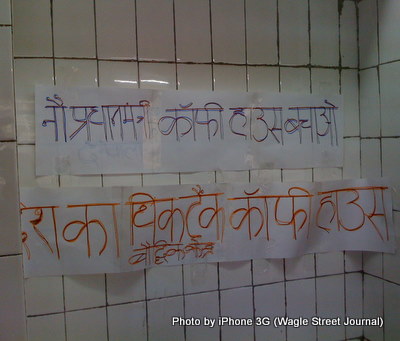 नौ प्रधानमंत्री कॉफी हाउस बचाओ
देश का थिकटैंक कॉफी हाउस
बौद्धिक
Photo by iPhone 3G (Wagle Street Journal)